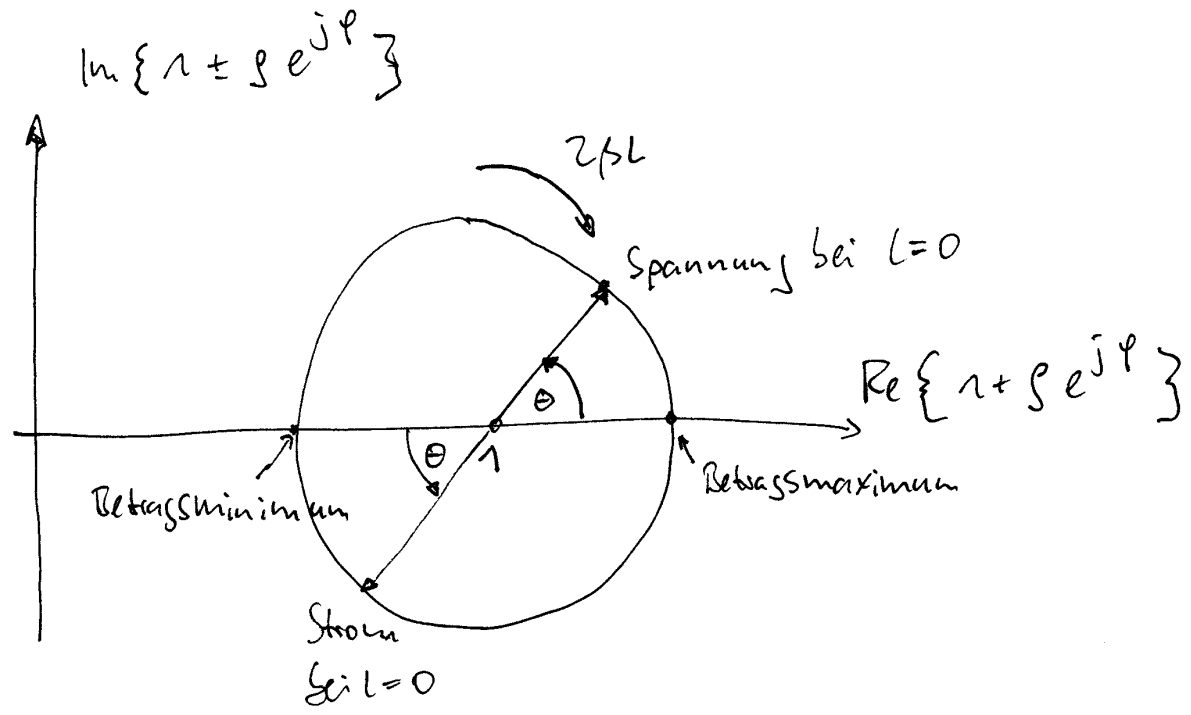 Im { 1 ± ρ e^jφ }
2βl
Spannung bei l=0
Re { 1 + ρ e^jφ }
Θ
Θ
1
Betragsminimum
Betragsmaximum
Strom
bei l=0